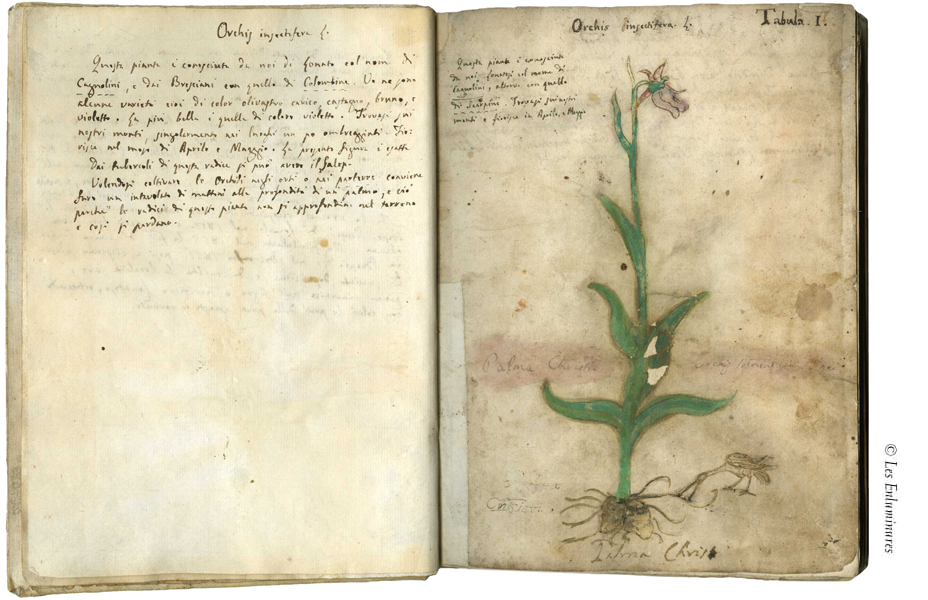 Orchis insectifera L.
Questa pianta è conosciuta da noi di Lonato col nome di
Cagnolini, e dai Bresciani con quello di Colombine. Ve ne sono
alcune varietà cioè di color olivastro carico, castagno, bruno, e
violetto. La più bella è quella di colore violetto. Trovasi sui
nostri monti, singolarmente nei luoghi un po ombreggianti. Fio-
risce nel mese di Aprile e Maggio. La presente figura è esatta
Dai tubercoli di questa radice si può avere il Salep.
Volendosi coltivare le Orchidi negli orti o nei parterre conviene
fare un intavolato di mattoni alla profondità di un palmo, e ciò
perchè le radici di questa pianta non si approfondino nel terreno
e così si perdano.
Orchis insectifera L.
Tabula. I.
Questa pianta è conosciuta
da noi Lonatesi col nome di
Cagnolini, altrove con quello
di Scarpini. Trovasi sui nostri
monti e fiorisce in Aprile, e Maggio
Palma Christi
Palma Christi
© Les Enluminures